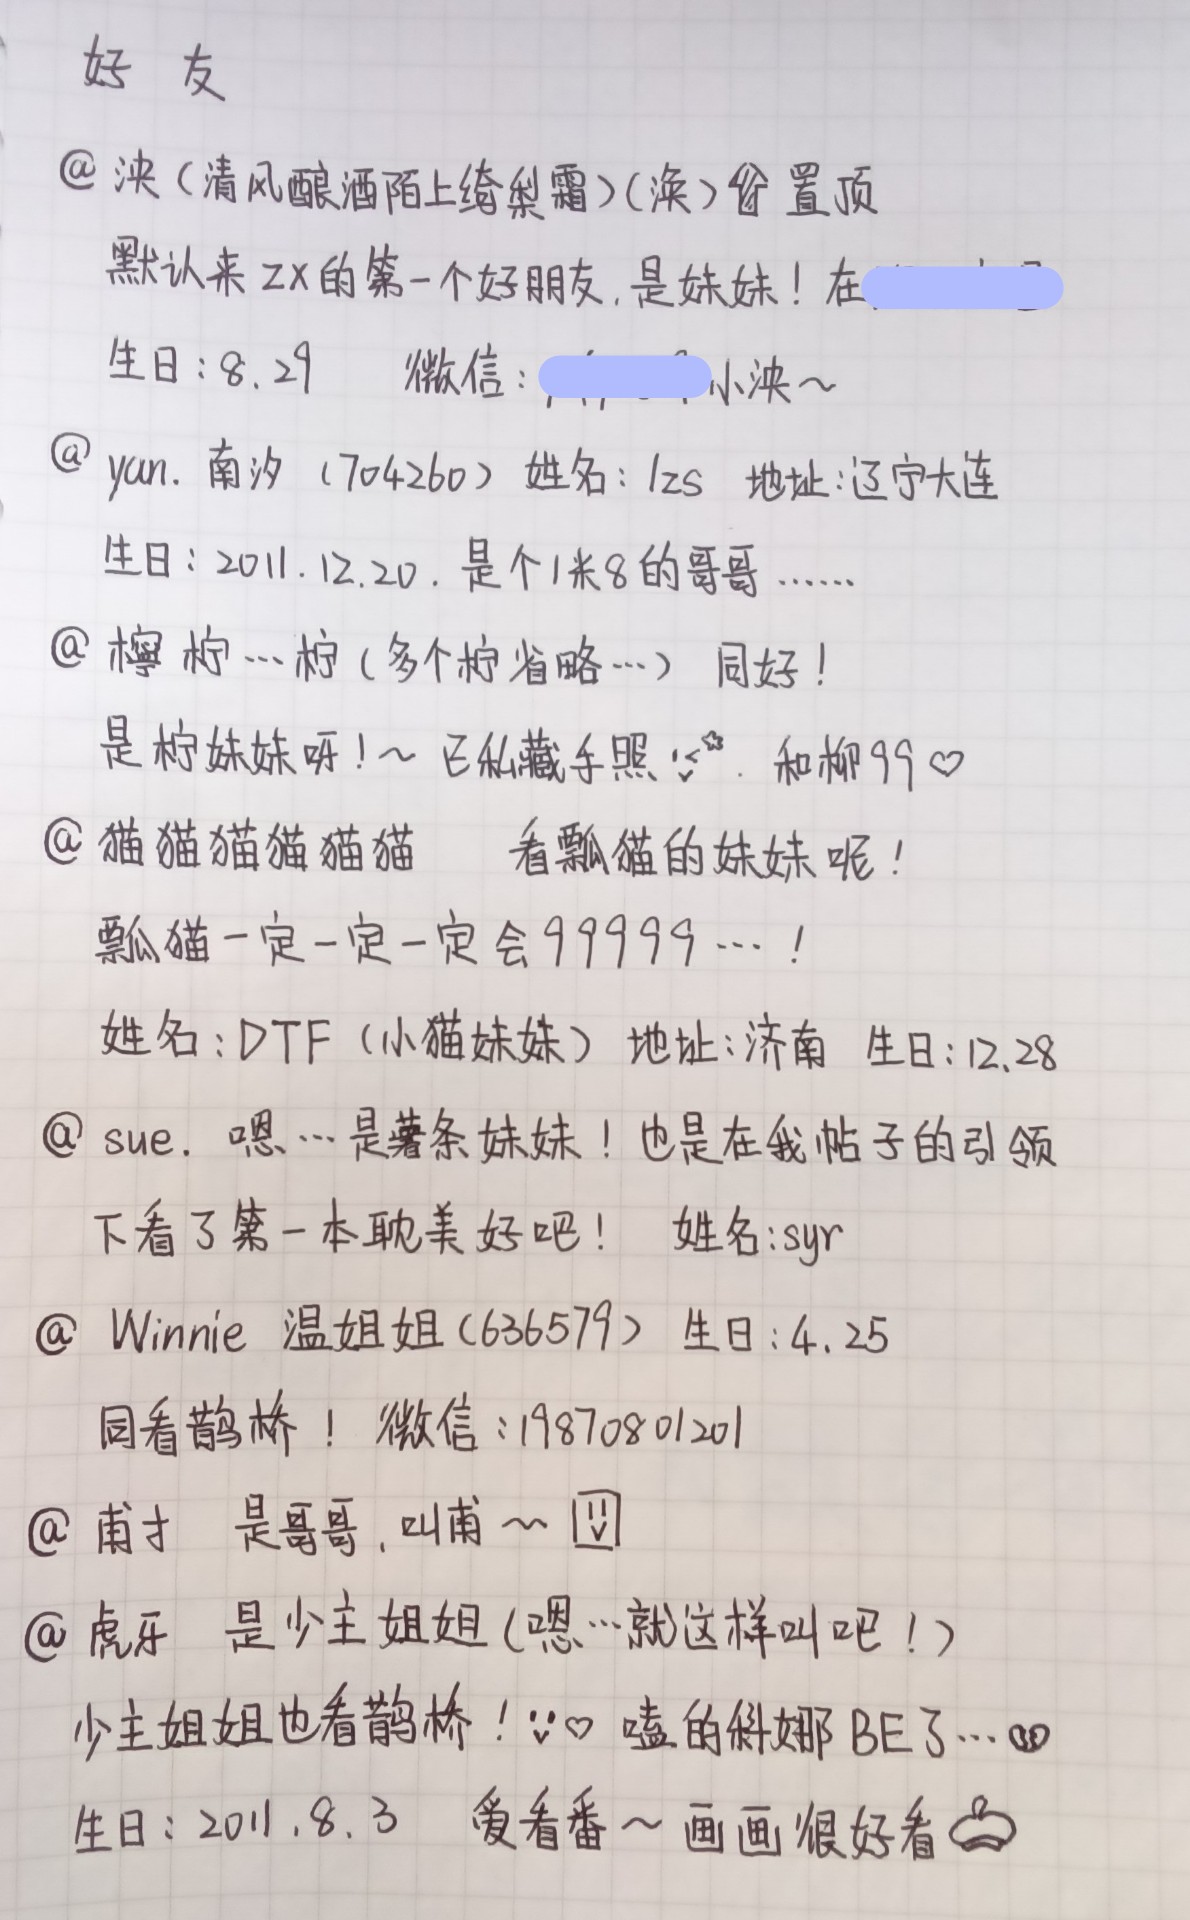 好 友
@泱(清风酿酒陌上绮梨霜)(涣) 置顶
默认来ZX的第一个好朋友,是妹妹!在
生日:8.29 微信: 小泱~
@yan. 南汐(704260) 姓名:lzs 地址:辽宁大连
生日:2011.12.20. 是个1米8的哥哥……
@檸柠…柠(多个柠省略…) 同好!
是柠妹妹呀!~已私藏手照. 和柳99♡
@猫猫猫猫猫猫 看瓢猫的妹妹呢!
瓢猫一定一定一定会99999…!
姓名:DTF(小猫妹妹) 地址:济南 生日:12.28
@sue. 嗯…是薯条妹妹!也是在我帖子的引领
下看了第一本耽美好吧! 姓名:syr
@Winnie 温姐姐(636579) 生日:4.25
同看鹊桥! 微信:19870801201
@甫寸 是哥哥,叫甫~
@虎牙 是少主姐姐(嗯…就这样叫吧!)
少主姐姐也看鹊桥!♡ 嗑的斜娜BE了…
生日:2011.8.3 爱看番~画画很好看